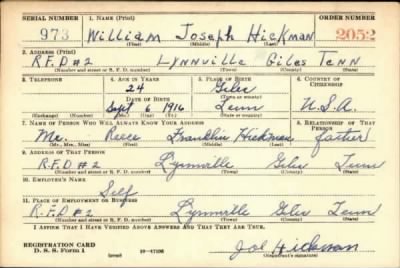 SERIAL NUMBER 1. NAME (Print) ORDER NUMBER
973 William Joseph Hickman 2052
(First) (Middle) (Last)
2. ADDRESS (Print)
R.F.D #2 Lynnville Giles Tenn
(Number and street or R. F. D. number) (Town) (County) (State)
3. TELEPHONE 4. AGE IN YEARS 5. PLACE OF BIRTH 6. COUNTRY OF CITIZENSHIP
24 Giles
DATE OF BIRTH (Town or county)
Sept 6 1916 Tenn U.S.A.
(Exchange) (Number) (Mo.) (Day) (Yr.) (State or country)
7. NAME OF PERSON WHO WILL ALWAYS KNOW YOUR ADDRESS 8. RELATIONSHIP OF THAT PERSON
Mr. Reece Franklin Hickman father
(Mr., Mrs., Miss) (First) (Middle) (Last)
9. ADDRESS OF THAT PERSON
R.F.D #2 Lynnville Giles Tenn
(Number and street or R. F. D. number) (Town) (County) (State)
10. EMPLOYER'S NAME
Self
11. PLACE OF EMPLOYMENT OR BUSINESS
R.F.D #2 Lynnville Giles Tenn
(Number and street or R. F. D. number) (Town) (County) (State)
I AFFIRM THAT I HAVE VERIFIED ABOVE ANSWERS AND THAT THEY ARE TRUE.
REGISTRATION CARD
D. S. S. Form 1 (over) Joe Hickman
(Registrant's signature)